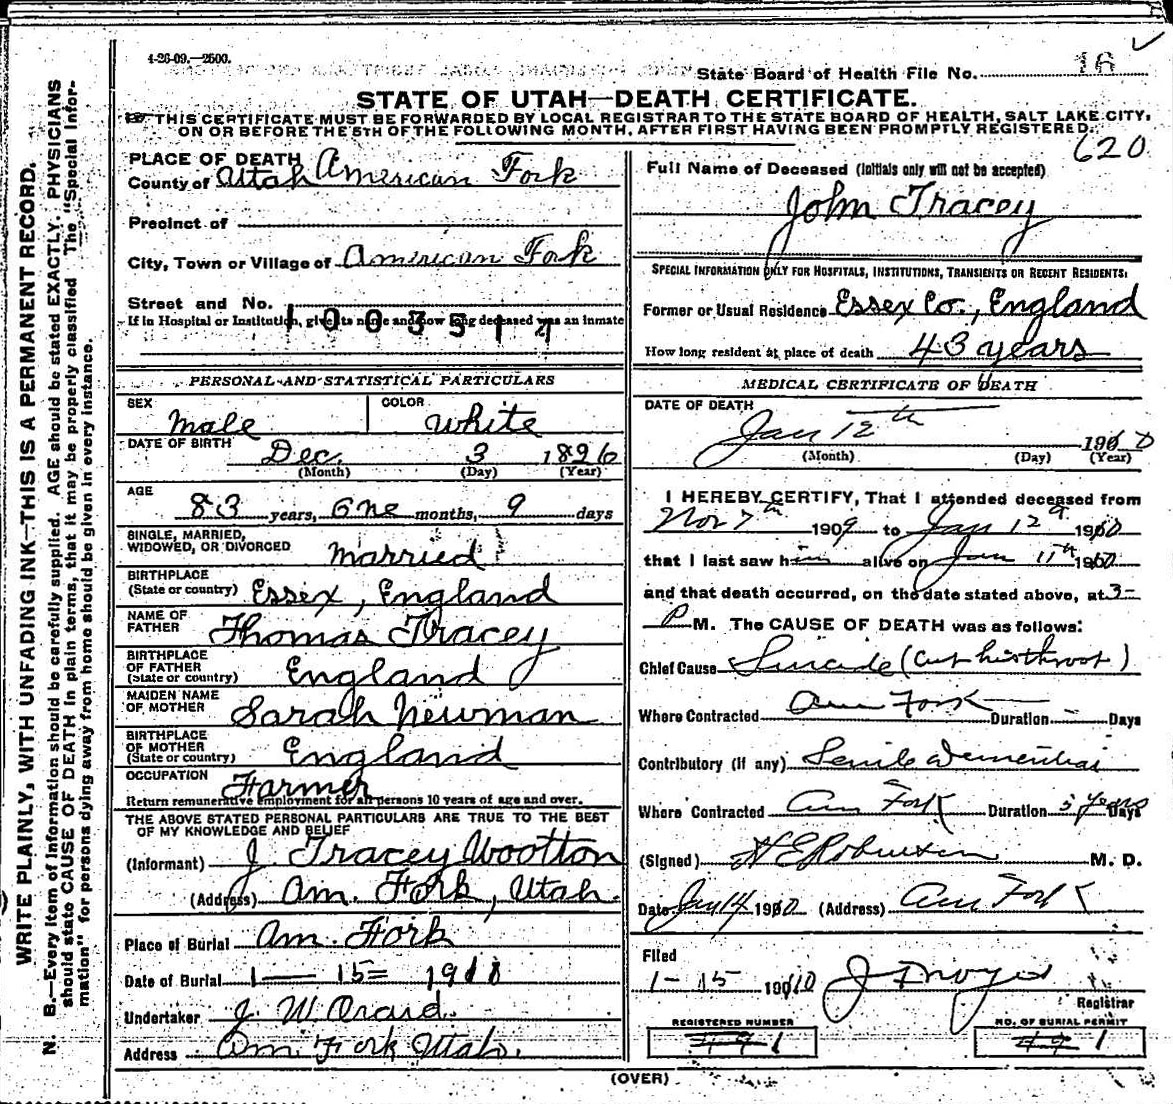 4-26-09.—2500.
State Board of Health File No. 16
STATE OF UTAH—DEATH CERTIFICATE.
THIS CERTIFICATE MUST BE FORWARDED BY LOCAL REGISTRAR TO THE STATE BOARD OF HEALTH, SALT LAKE CITY,
ON OR BEFORE THE 5TH OF THE FOLLOWING MONTH, AFTER FIRST HAVING BEEN PROMPTLY REGISTERED.
620
WRITE PLAINLY, WITH UNFADING INK—THIS IS A PERMANENT RECORD.
N. B.—Every item of information should be carefully supplied. AGE should be stated EXACTLY. PHYSICIANS
should state CAUSE OF DEATH in plain terms, that it may be properly classified. The "Special Infor-
mation" for persons dying away from home should be given in every instance.
PLACE OF DEATH American Fork
County of Utah
Precinct of
City, Town or Village of American Fork
Street and No.
If in Hospital or Institution, give its name and how long deceased was an inmate
1003514
PERSONAL AND STATISTICAL PARTICULARS
SEX
Male
COLOR
White
DATE OF BIRTH
Dec. 3 1826
(Month) (Day) (Year)
AGE
83 years, One months, 9 days
SINGLE, MARRIED,
WIDOWED, OR DIVORCED married
BIRTHPLACE
(State or country) Essex, England
NAME OF
FATHER Thomas Tracey
BIRTHPLACE
OF FATHER
(State or country) England
MAIDEN NAME
OF MOTHER Sarah Newman
BIRTHPLACE
OF MOTHER
(State or country) England
OCCUPATION Farmer
Return remunerative employment for all persons 10 years of age and over.
THE ABOVE STATED PERSONAL PARTICULARS ARE TRUE TO THE BEST
OF MY KNOWLEDGE AND BELIEF
(Informant) J. Tracey Wootton
(Address) Am. Fork, Utah.
Place of Burial Am. Fork
Date of Burial 1 — 15 =
Undertaker J. W.
Address Am. Fork Utah.
Full Name of Deceased (Initials only will not be accepted)
John Tracey
SPECIAL INFORMATION ONLY FOR HOSPITALS, INSTITUTIONS, TRANSIENTS OR RECENT RESIDENTS:
Former or Usual Residence Essex Co., England
How long resident at place of death 43 years
MEDICAL CERTIFICATE OF DEATH
DATE OF DEATH
Jan 12th 1910
(Month) (Day) (Year)
I HEREBY CERTIFY, That I attended deceased from
Nov 7th 1909 to Jan 12th 1910
that I last saw him alive on Jan 11th 1910
and that death occurred, on the date stated above, at 3-
P M. The CAUSE OF DEATH was as follows:
Chief Cause Suicide (cut his throat)
Where Contracted Am Fork Duration Days
Contributory (if any) Senile Dementia
Where Contracted Am Fork Duration 5 years Days
(Signed) M. D.
Date Jan 14 1910 (Address) Am Fork
Filed
1-15 1910
Registrar
REGISTERED NUMBER
1
NO. OF BURIAL PERMIT
1
(OVER)